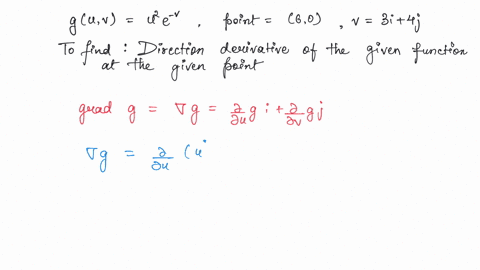 g(u,v) = u²e⁻ᵛ , point = (6,0) , v = 3i + 4j
To find : Direction derivative of the given function
at the given point
grad g = ∇g = ∂/∂u g i + ∂/∂v g j
∇g = ∂/∂u (u